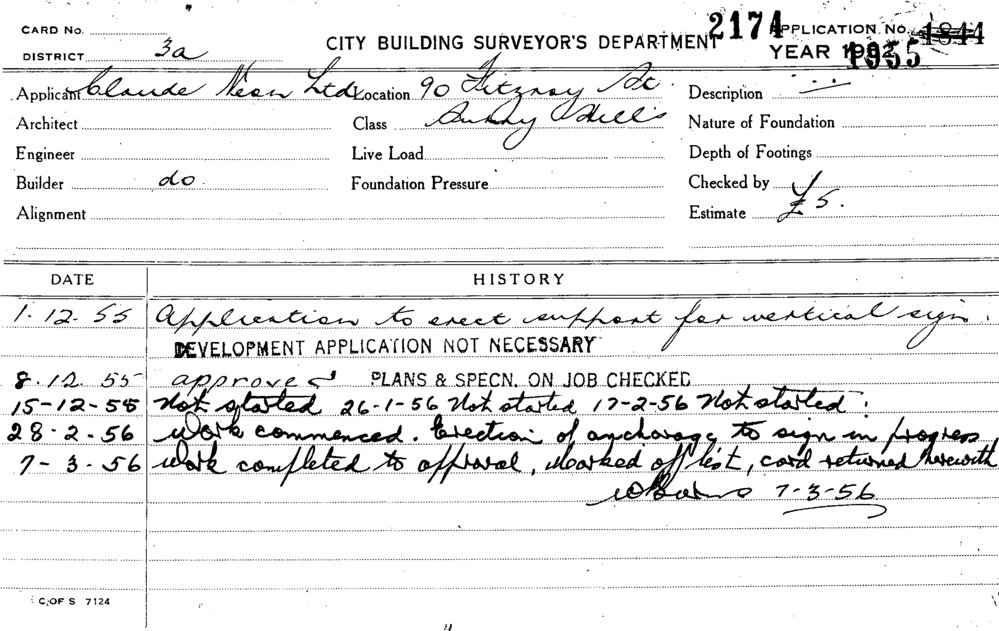 CARD No.
DISTRICT 3a
CITY BUILDING SURVEYOR'S DEPARTMENT
2174 APPLICATION No. 1844
YEAR 1955
Applicant Claude Neon Ltd Location 90 Fitzroy St. Description
Architect Class Surry Hills Nature of Foundation
Engineer Live Load Depth of Footings
Builder do. Foundation Pressure Checked by
Alignment Estimate £5.
DATE HISTORY
1.12.55 Application to erect support for vertical sign.
DEVELOPMENT APPLICATION NOT NECESSARY
8.12.55 approved PLANS & SPECN. ON JOB CHECKED
15-12-55 Not started 26-1-56 Not started 17-2-56 Not started.
28.2.56 Work commenced. Erection of anchorage to sign in progress
7-3.56 Work completed to approval, Marked off list, card returned herewith
7-3-56
C.OF S 7124